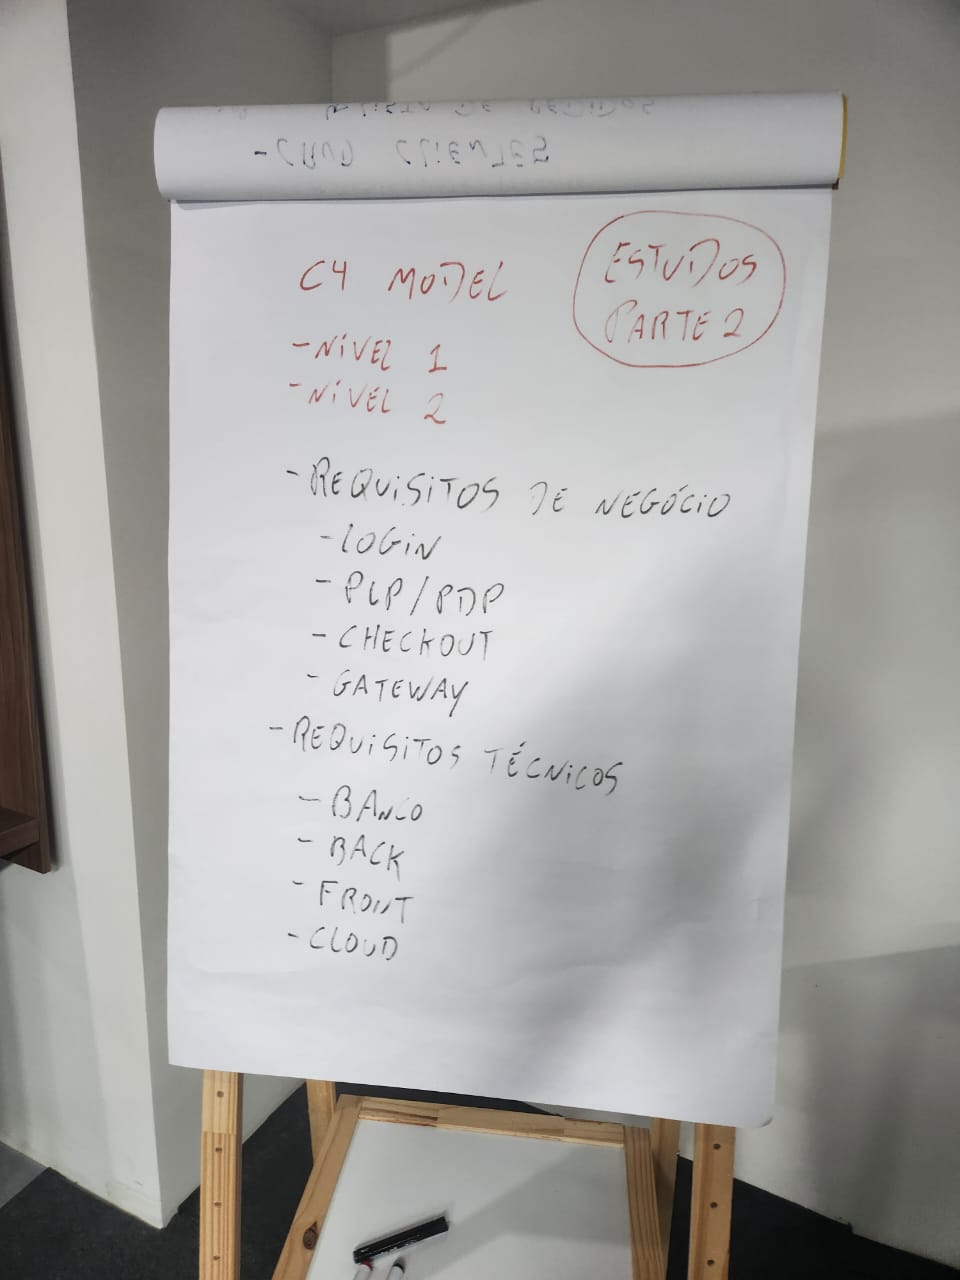 - CRUD CLIENTES
C4 MODEL
ESTUDOS
PARTE 2
- NÍVEL 1
- NÍVEL 2
- REQUISITOS DE NEGÓCIO
- LOGIN
- PLP/PDP
- CHECKOUT
- GATEWAY
- REQUISITOS TÉCNICOS
- BANCO
- BACK
- FRONT
- CLOUD